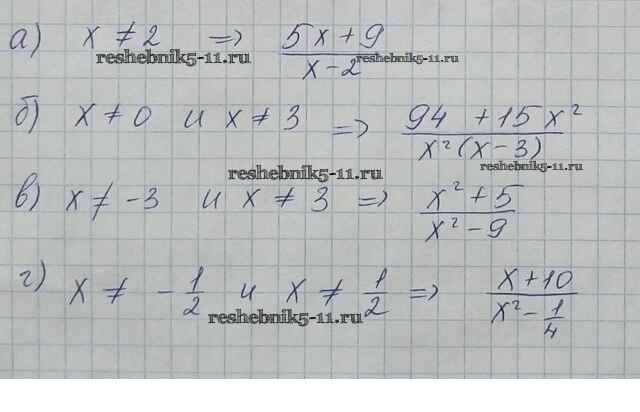 а) x ≠ 2 => (5x + 9)/(x - 2)
reshebnik5-11.ru reshebnik5-11.ru
б) x ≠ 0 и x ≠ 3 => (94 + 15x²)/(x²(x - 3))
reshebnik5-11.ru reshebnik5-11.ru
в) x ≠ -3 и x ≠ 3 => (x² + 5)/(x² - 9)
г) x ≠ -1/2 и x ≠ 1/2 => (x + 10)/(x² - 1/4)
reshebnik5-11.ru